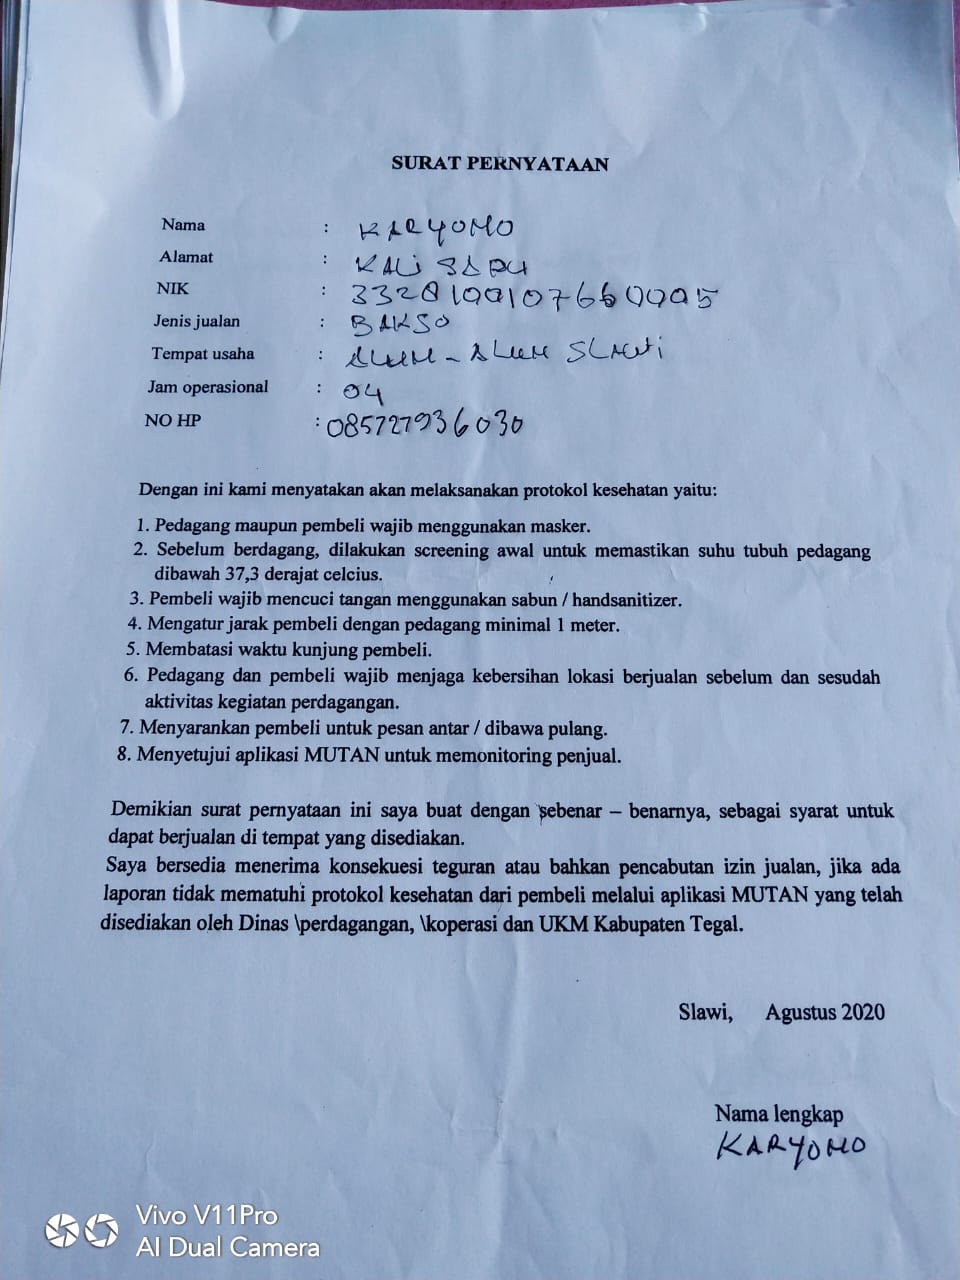 SURAT PERNYATAAN
Nama : KARYOMO
Alamat : KALI SAPU
NIK : 3328100107660005
Jenis jualan : BAKSO
Tempat usaha : ALUN - ALUN SLAWI
Jam operasional : 04
NO HP : 085727936030
Dengan ini kami menyatakan akan melaksanakan protokol kesehatan yaitu:
1. Pedagang maupun pembeli wajib menggunakan masker.
2. Sebelum berdagang, dilakukan screening awal untuk memastikan suhu tubuh pedagang
dibawah 37,3 derajat celcius.
3. Pembeli wajib mencuci tangan menggunakan sabun / handsanitizer.
4. Mengatur jarak pembeli dengan pedagang minimal 1 meter.
5. Membatasi waktu kunjung pembeli.
6. Pedagang dan pembeli wajib menjaga kebersihan lokasi berjualan sebelum dan sesudah
aktivitas kegiatan perdagangan.
7. Menyarankan pembeli untuk pesan antar / dibawa pulang.
8. Menyetujui aplikasi MUTAN untuk memonitoring penjual.
Demikian surat pernyataan ini saya buat dengan sebenar – benarnya, sebagai syarat untuk
dapat berjualan di tempat yang disediakan.
Saya bersedia menerima konsekuesi teguran atau bahkan pencabutan izin jualan, jika ada
laporan tidak mematuhi protokol kesehatan dari pembeli melalui aplikasi MUTAN yang telah
disediakan oleh Dinas \perdagangan, \koperasi dan UKM Kabupaten Tegal.
Slawi, Agustus 2020
Nama lengkap
KARYOMO
Vivo V11Pro
AI Dual Camera